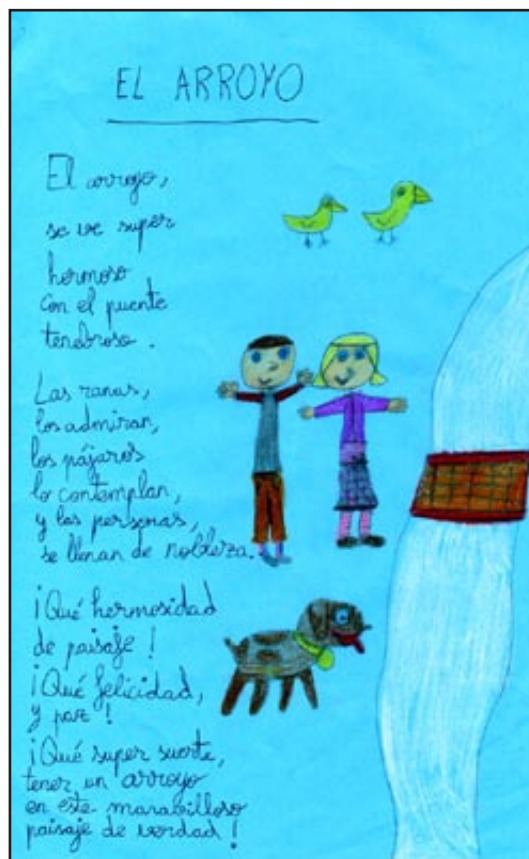 EL ARROYO
El arroyo,
se ve super
hermoso
con el puente
tenebroso.
Las ranas,
los admiran,
los pájaros
lo contemplan,
y las personas,
se llenan de nobleza.
¡Qué hermosidad
de paisaje!
¡Qué felicidad,
y paz!
¡Qué super suerte,
tener un arroyo
en este maravilloso
paisaje de verdad!